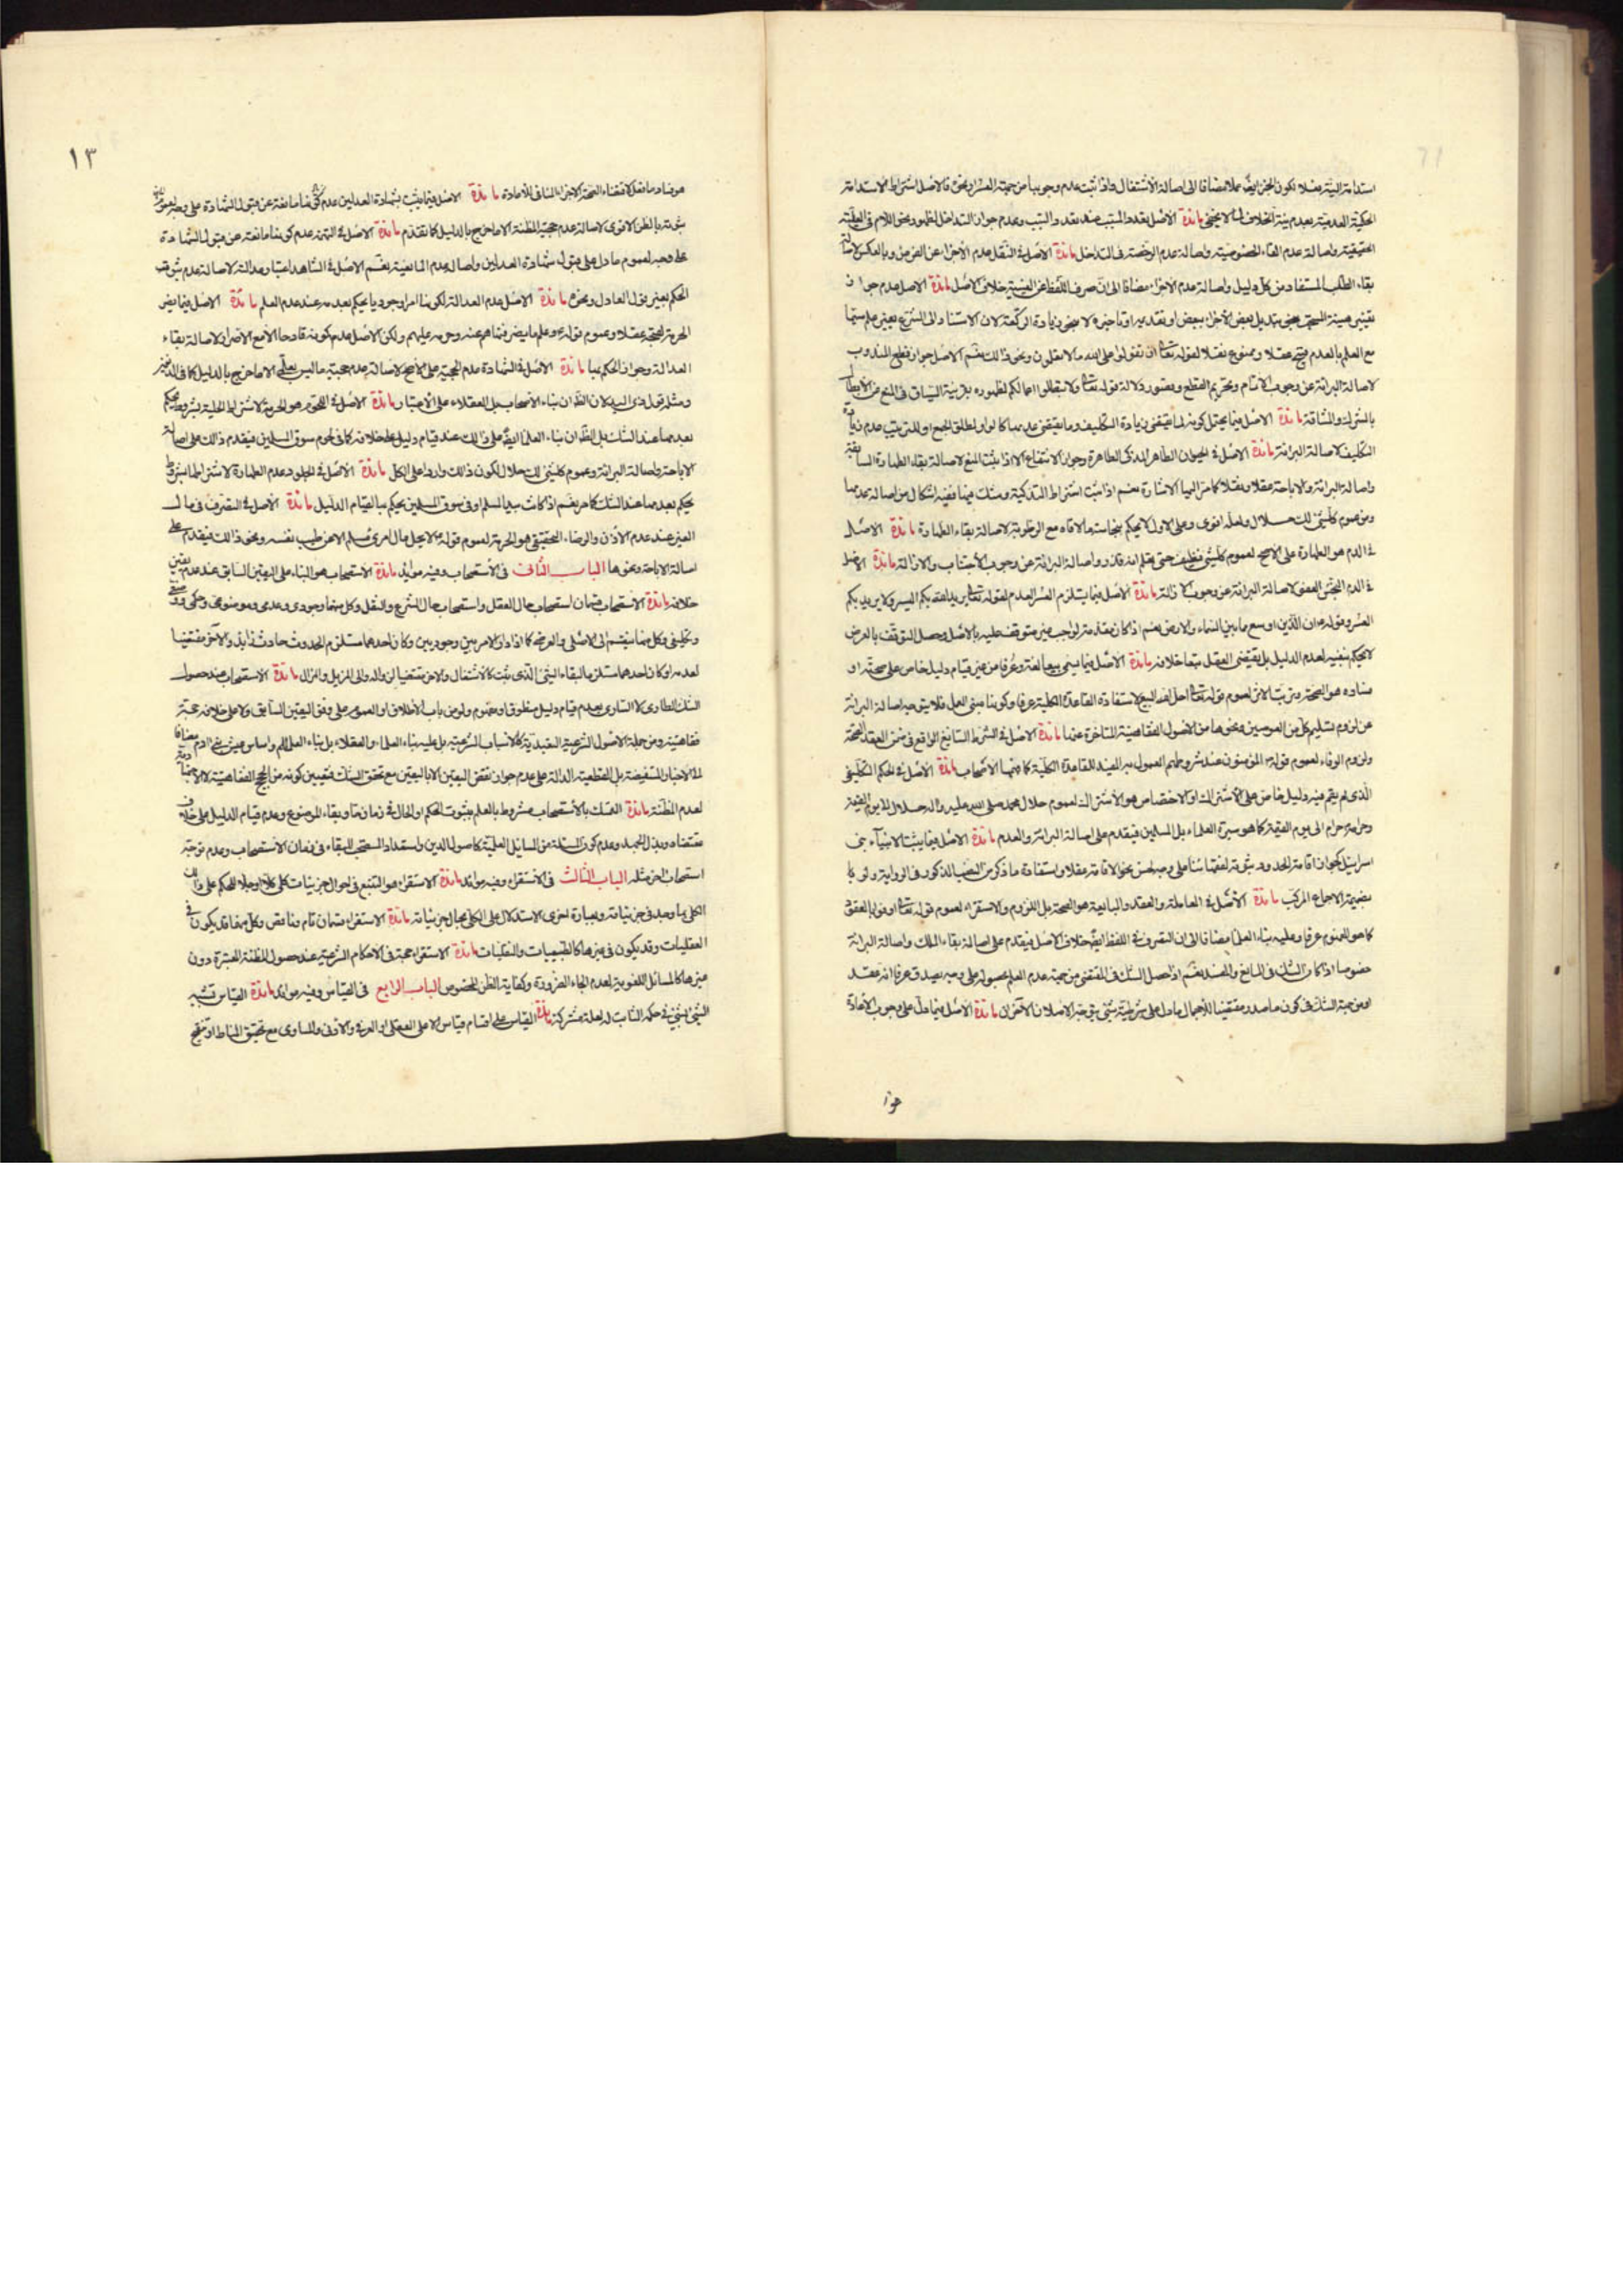 استدامة النية فعلا لكون الجزء ايضا عملا مضافا الى اصالة الاشتغال واذا ثبت عدم وجوبها من جهة العسر ونحوه فالاصل اشتراط الاستدامة
الحكمية بعدم نية الخلاف كما لا يخفى مائدة الاصل تعدد المسبب عند تعدد السبب وعدم جواز التداخل لظهور نحو اللام في العلية
الحقيقية واصالة عدم الغاء الخصوصية واصالة عدم الرخصة في التداخل مائدة الاصل في النفل عدم الاجزاء عن الفرض وبالعكس لاصالة
بقاء الطلب المستفاد من كل دليل واصالة عدم الاجزاء مضافا الى ان صرف اللفظ عن العينية خلاف الاصل مائدة الاصل عدم جواز
تغيير هيئة بتبديل بعض الاجزاء ببعض او تقديم او تاخير ولا بنحو زيادة الركعة لان الاستناد الى الشرع بغير علم سيما
مع العلم بالعدم قبيح عقلا وممنوع نقلا لقوله تعالى ان تقولوا على الله ما لا تعلمون ونحو ذلك نعم الاصل جواز قطع المندوب
لاصالة البرائة عن وجوب الاتمام وتحريم القطع وقصور دلالة قوله تعالى ولا تبطلوا اعمالكم لظهوره بقرينة السياق في المنع عن الابطال
بالشرك والشاقة مائدة الاصل فيما يحتمل كونه لما يقتضي زيادة التكليف وما يقتضي عدمها كالواو لمطلق الجمع او للترتيب عدم زيادة
التكليف لاصالة البرائة مائدة الاصل في الحيوان الطاهر المذكى الطهارة وجواز الانتفاع الا اذا ثبت المنع لاصالة بقاء الطهارة السابقة
واصالة البرائة والاباحة عقلا ونقلا كما مر اليها الاشارة نعم اذا ثبت اشتراط التذكية وشك فيها ففيه اشكال من اصالة عدمها
ومن عموم كل شيء لك حلال ولعله اقوى وعلى الاول لا يحكم بنجاسة ما لاقاه مع الرطوبة لاصالة بقاء الطهارة مائدة الاصل
في الدم هو الطهارة على الاصح لعموم كل شيء نظيف حتى يعلم انه قذر واصالة البرائة عن وجوب الاجتناب والازالة مائدة الاصل
في الدم النجس العفو لاصالة البرائة عن وجوب الازالة مائدة الاصل فيما يستلزم العسر العدم لقوله تعالى يريد الله بكم اليسر ولا يريد بكم
العسر وقوله ان الدين اوسع مما بين السماء والارض نعم اذا كان مقدمة لواجب غير متوقف عليه بالاصل وحصل التوقف بالعرض
لا يحكم بنفيه لعدم الدليل بل يقتضي العقل بقاء خلافه مائدة الاصل فيما يسمى بيعا لغة وعرفا من غير قيام دليل خاص على صحته او
فساده هو الصحة وترتب الاثر لعموم قوله تعالى احل الله البيع لاستفادة القاعدة الكلية عرفا وكونها مبنى العمل فلا يتوجه اصالة البرائة
عن لزوم تسليم كل من العوضين ونحوها من الاصول الفقاهية المتاخرة عنها مائدة الاصل في الشرط السائغ الواقع في ضمن العقد الصحة
ولزوم الوفاء لعموم قوله المؤمنون عند شروطهم المعمول به المفيد للقاعدة الكلية كما فهمها الاصحاب مائدة الاصل في الحكم التكليفي
الذي لم يقم فيه دليل خاص على الاشتراك او الاختصاص هو الاشتراك لعموم حلال محمد صلى الله عليه وآله حلال الى يوم القيمة
وحرامه حرام الى يوم القيمة كما هو سيرة العلماء بل المسلمين فيقدم على اصالة البرائة والعدم مائدة الاصل فيما يثبت لانبياء بني
اسرائيل كجواز اقامة الحدود هو ثبوته لفقهائنا
بضميمة الاجماع المركب مائدة الاصل في المعاملة والعقد هو الصحة بل اللزوم والاستقرار لعموم قوله تعالى اوفوا بالعقود
كما هو المفهوم عرفا وعليه بناء العلماء مضافا الى ان التصرف في اللفظ ايضا خلاف الاصل فيقدم على اصالة بقاء الملك واصالة البرائة
خصوصا اذا كان الشك في المانع نعم اذا حصل الشك في المقتضي من جهة عدم العلم بحصوله على وجه يصدق عرفا انه عقد
او من جهة الشك في كون ما صدر مقتضيا للاجمال مائدة الاصل فيما دل على وجوب الاعادة
هو
١٣
هو فساد ما فعل لاقتضاء الصحة الاجزاء المنافي للاعادة مائدة الاصل فيما يثبت بشهادة العدلين عدم
ثبوته بالظن الاقوى لاصالة عدم حجية المظنة الا ما خرج بالدليل كما تقدم مائدة الاصل في التهمة عدم كونها مانعة عن قبول الشهادة
على وجه لعموم ما دل على قبول شهادة العدلين واصالة عدم المانعية نعم الاصل في الشاهد اعتبار عدالته لاصالة عدم ثبوت
الحكم بغير قول العادل ونحوه مائدة الاصل عدم العدالة لكونها امرا وجوديا يحكم بعدمه عند عدم العلم مائدة الاصل فيما يضر
الحرمة لقبحه عقلا وعموم قوله وعلم ما يضرهم فنهاهم عنه وحرمه عليهم ولكن الاصل عدم كونه قادحا الا مع الاصرار لاصالة بقاء
العدالة وجواز الحكم بها مائدة الاصل في الشهادة عدم الحجية على الاصح لاصالة عدم حجية ما ليس بعلم الا ما خرج بالدليل
ومثله قول ذي اليد لان الظاهر ان بناء الاصحاب بل العقلاء على الاعتبار مائدة الاصل في اللحوم هو الحرمة لاشتراط الحلية بشروط يحكم
بعدمها عند الشك بل الظاهر ان بناء العلماء ايضا على ذلك عند قيام دليل على خلافه كما في لحوم سوق المسلمين فيقدم ذلك على اصالة
الاباحة واصالة البرائة وعموم كل شيء لك حلال لكون ذلك واردا على الكل مائدة الاصل في الجلود عدم الطهارة لاشتراطها بشروط
يحكم بعدمها عند الشك كما مر نعم اذا كانت بيد المسلم او في سوق المسلمين يحكم بها لقيام الدليل مائدة الاصل في التصرف في مال
الغير عند عدم الاذن والرضاء التحقيقي هو الحرمة لعموم قوله لا يحل مال امرئ مسلم الا عن طيب نفسه ونحو ذلك فيقدم على
اصالة الاباحة ونحوها الباب الثاني في الاستصحاب وفيه موائد مائدة الاستصحاب هو البناء على اليقين السابق عند عدم يقين
خلافه مائدة الاستصحاب قسمان استصحاب حال العقل واستصحاب حال الشرع والنقل وكل منهما وجودي وعدمي وموضوعي وحكمي ووضعي
وتكليفي وكل منها ينقسم الى الاصلي والعرضي كما اذا دار الامر بين وجوديين وكان احدهما مستلزم لحدوث حادث زايد والآخر مقتضيا
لعدمه او كان احدهما مستلزما لبقاء الشيء الذي ثبت كالاشتغال والاخر مقتضيا لزواله والى المزيل والمزال مائدة الاستصحاب عند حصول
الشك الطاري كالساري بعدم قيام دليل منطوق او مفهوم ولو من باب الاطلاق او العموم على وفق اليقين السابق ولا على خلافه حجة
فقاهتية ومن جملة الاصول الشرعية التعبدية كالاسباب الشرعية بل عليه بناء العلماء والعقلاء بل بناء العالم واساس عيش بني آدم مضافا
الى الاخبار المستفيضة بل القطعية الدالة على عدم جواز نقض اليقين الا باليقين مع تحقق الشك فتعيين كونه من الحجج الفقاهتية لا الاجتهادية
لعدم المظنة مائدة التمسك بالاستصحاب مشروط بالعلم بثبوت الحكم او الحال في زمان ما وبقاء الموضوع وعدم قيام الدليل على خلاف
مقتضاه وبذل الجهد وعدم كون المسئلة من المسائل العلمية كاصول الدين واستعداد المستصحب للبقاء في زمان الاستصحاب وعدم توجه
استصحاب اخر مثله الباب الثالث في الاستقراء وفيه موائد مائدة الاستقراء هو التتبع في احوال جزئيات كلي كلا او جلا للحكم على ذلك
الكلي بما وجد في جزئياته وبعبارة اخرى الاستدلال على الكلي بحال جزئياته مائدة الاستقراء قسمان تام وناقص وكل منهما قد يكون في
العقليات وقد يكون في غيرها كالطبيعيات والنقليات مائدة الاستقراء حجة في الاحكام الشرعية عند حصول المظنة المعتبرة دون
غيرها كالمسائل اللغوية لعدم الجاء الضرورة وكفاية الظن المخصوص الباب الرابع في القياس وفيه موائد مائدة القياس تشبيه
الشيء بشيء في حكمه الثابت له لعلة مشتركة مائدة القياس على اقسام قياس الاعلى العقلي او العرفي والادنى والمساوي مع تحقيق المناط او تنقيح